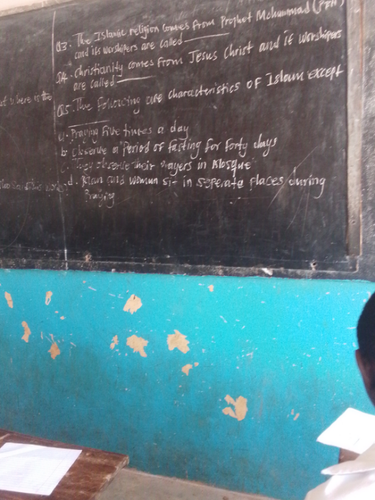 Q3. The Islamic religion comes from Prophet Mohammad (PBH)
and its worshipers are called
Q4. Christianity comes from Jesus Christ and it worshipers
are called
Q5. The following are characteristics of Islam except
a. Praying Five times a day
b. Observe a Period of fasting for forty days
observe their Prayers in Mosque
d. Men and women sit in seperate Places during
Praying